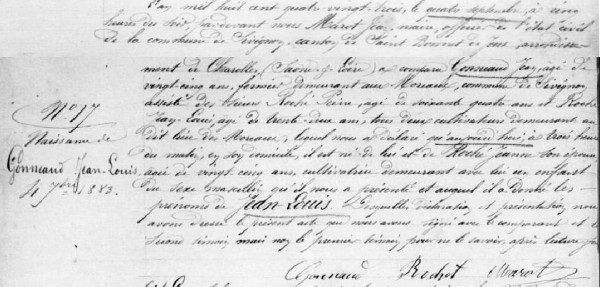 L'an mil huit cent quatre-vingt-trois, le quatre septembre, à cinq
heures du soir, par devant nous Marot Jean, maire, officier de l'état civil
de la commune de Sivignon, canton de Saint Bonnet de Joux, arrondisse-
ment de Charolles, (Saône & Loire) a comparu Gonneaud Jean, agé de
vingt cinq ans, fermier demeurant aux Mouaux, commune de Sivignon,
assisté des sieurs Roché Pierre, agé de soixante quatre ans et Roché
Jean-Louis agé de trente-deux ans, tous deux cultivateurs demeurant au
dit lieu des Mouaux, lequel nous a déclaré qu'aujourd'hui, à trois heures
du matin, en son domicile, il est né de lui et de Roché Jeanne son épouse
agée de vingt cinq ans, cultivatrice demeurant avec lui un enfant
du sexe masculin qu'il nous a présenté et auquel il a donné les
prénoms de Jean-Louis. Desquelles déclaration et présentation nous
avons dressé le présent acte que nous avons signé avec le comparant et le
témoin mais non le premier témoin pour ne le savoir, après lecture
N° 17
Naissance de
Gonneaud Jean-Louis
4 7bre 1883.
Gonneaud Rochet Marot